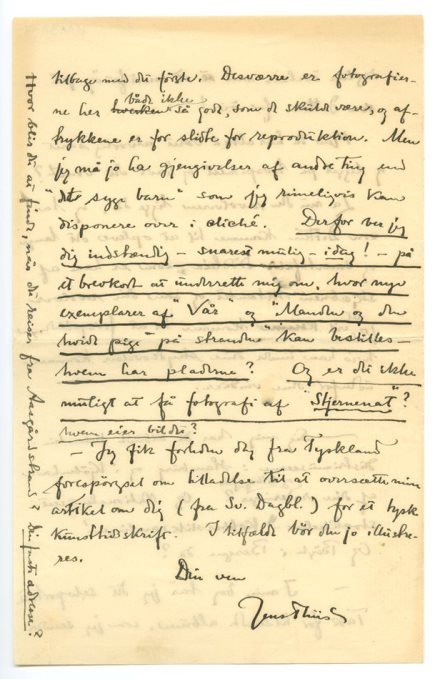 tilbage med det første. Desværre er fotografier-
ne her både ikke så godt, som de skulde være, og af-
trykkene er for slidte for reproduktion. Men
jeg må jo ha gjengivelser af andre ting end
"det syge barn" som jeg rimeligvis kan
disponere over i cliché. Derfor ber jeg
dig indstændig – snarest mulig – idag! – på
et brevkort at underrette mig om, hvor mye
exemplarer af "Vår" og "Manden og den
hvide pige" på stranden" kan bestilles –
hvem har pladerne? Og er det ikke
muligt at få fotografi af "Stjernenat"?
hvem eier bildet?
– Jeg fik forleden dag fra Tyskland
forespörgsel om tilladelse til at oversætte min
artikel om dig (fra Sv. Dagbl.) for et tysk
kunsttidsskrift. I tilfælde bör den jo illustre-
res.
Din ven
Jens Thiis
Hvor blir du at finde, når du reiser fra Aasgårdstrand? Din faste adresse?